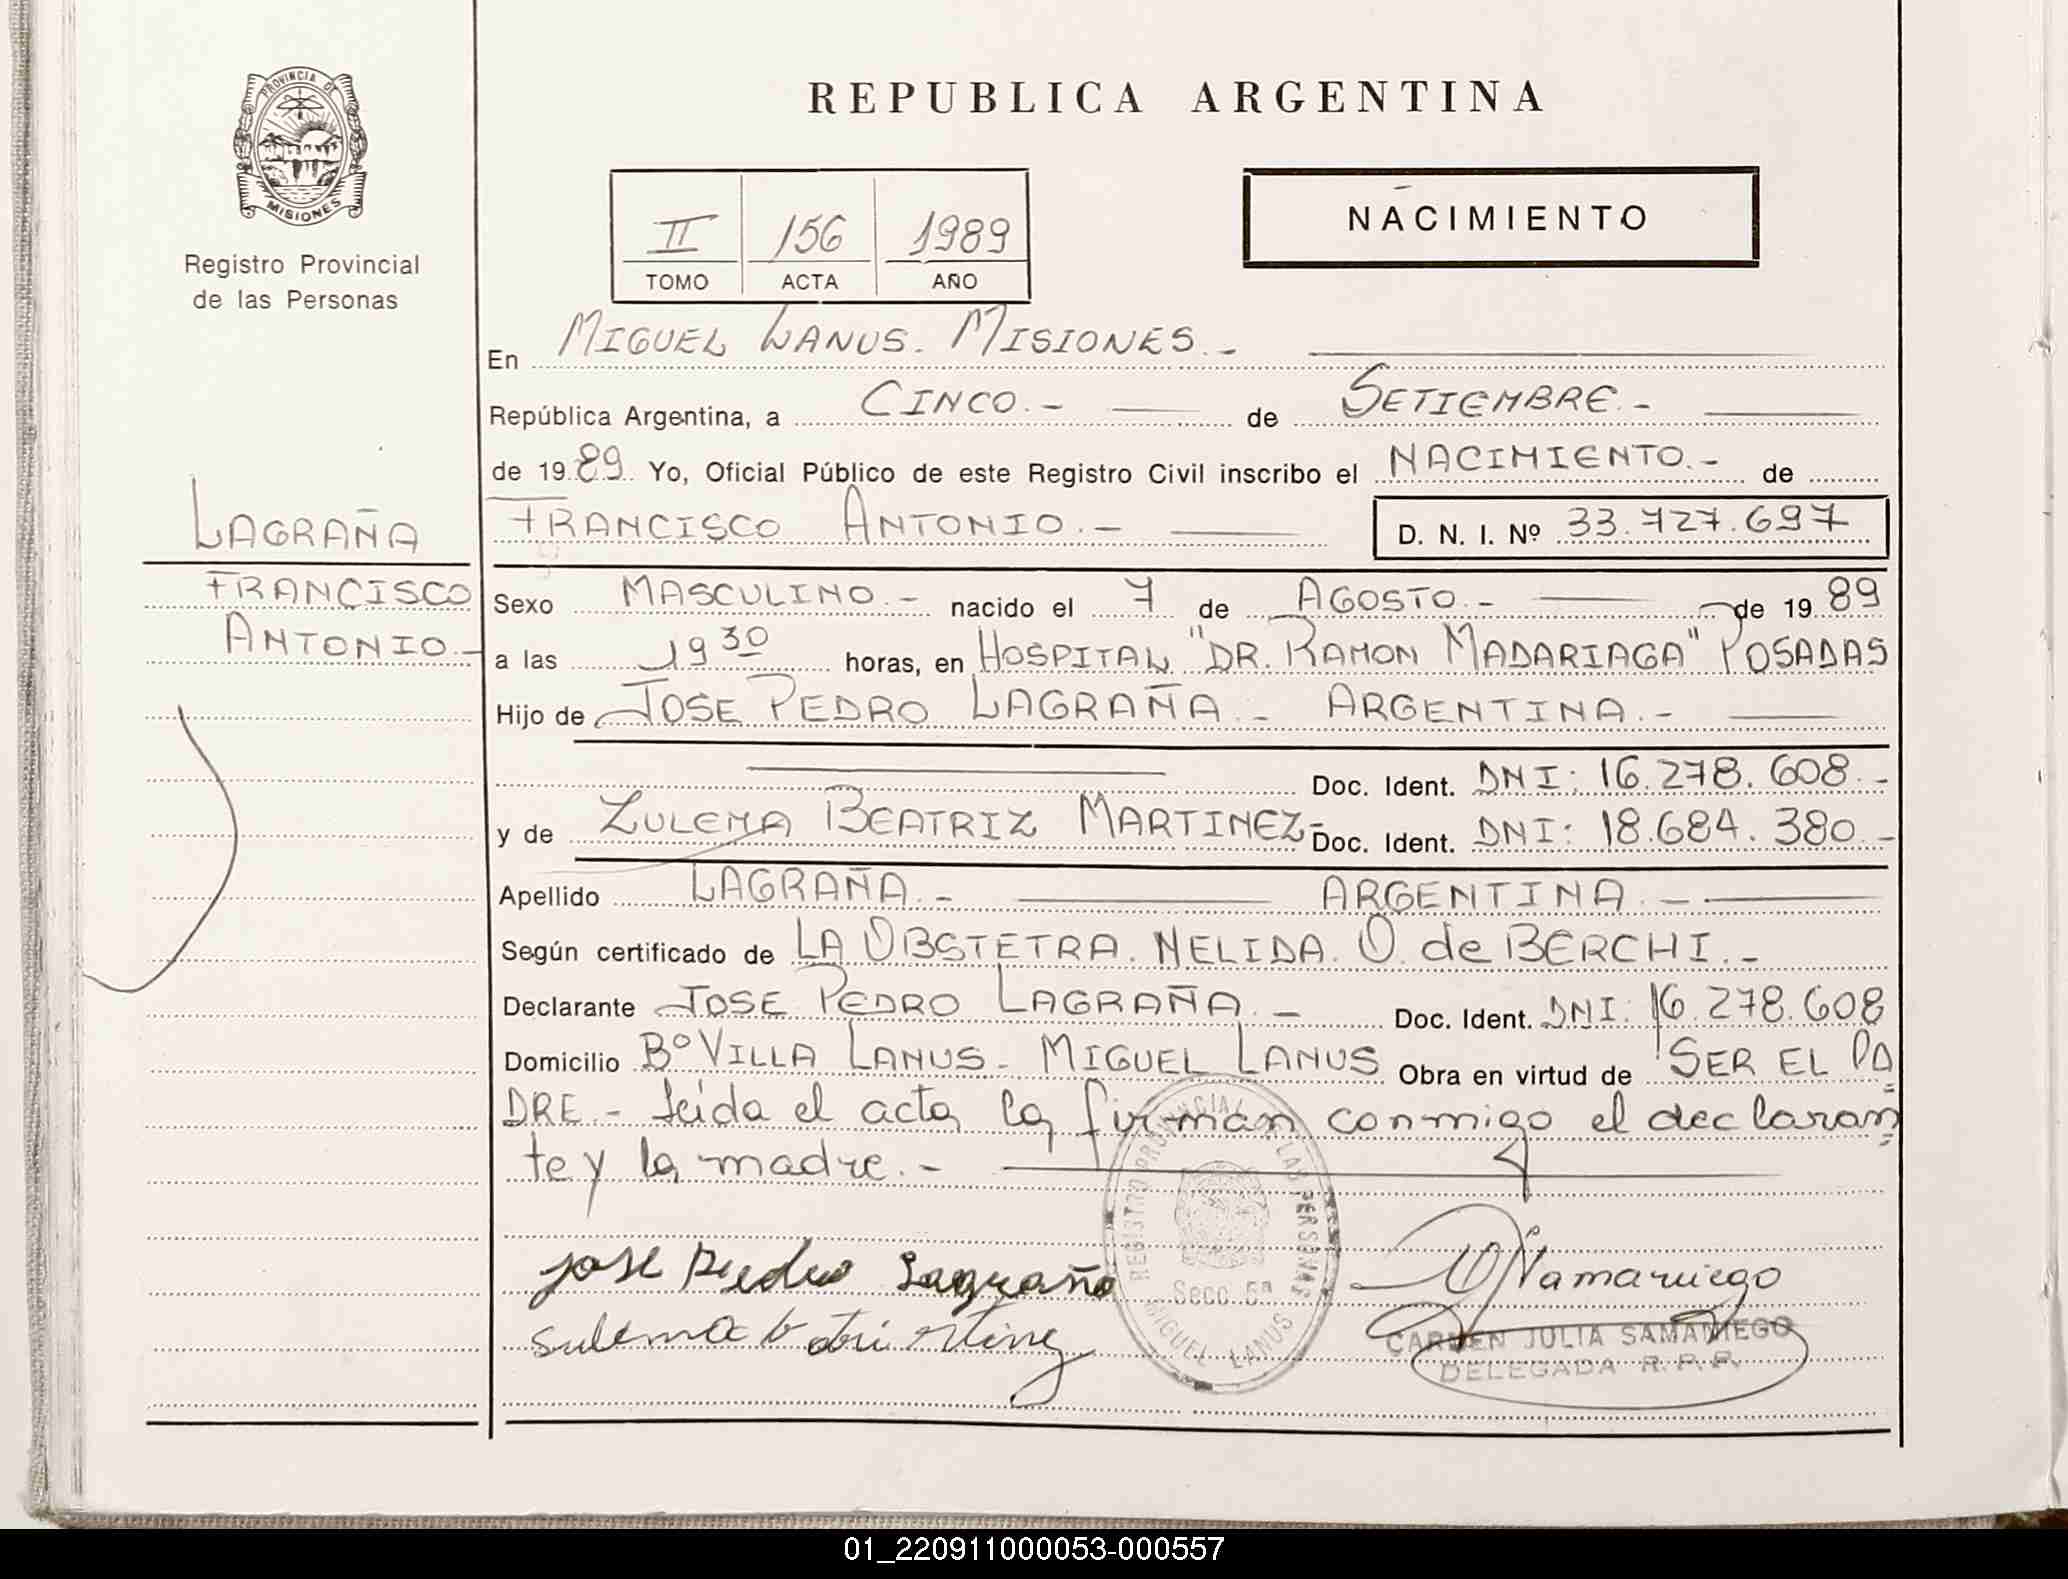 PROVINCIA DE
MISIONES
Registro Provincial
de las Personas
REPUBLICA ARGENTINA
II 156 1989
TOMO ACTA AÑO
NACIMIENTO
En MIGUEL LANUS. MISIONES.-
República Argentina, a CINCO.- de SETIEMBRE.-
de 1989 Yo, Oficial Público de este Registro Civil inscribo el NACIMIENTO.- de
FRANCISCO ANTONIO.- D. N. I. Nº 33.727.697
LAGRAÑA
FRANCISCO
ANTONIO.-
Sexo MASCULINO.- nacido el 7 de AGOSTO.- de 1989
a las 19 30 horas, en HOSPITAL "DR. RAMON MADARIAGA" POSADAS
Hijo de JOSE PEDRO LAGRAÑA.- ARGENTINA.-
Doc. Ident. DNI: 16.278.608.-
y de ZULEMA BEATRIZ MARTINEZ- Doc. Ident. DNI: 18.684.380.-
Apellido LAGRAÑA.- ARGENTINA.-
Según certificado de LA OBSTETRA. NELIDA. O. de BERCHI.-
Declarante JOSE PEDRO LAGRAÑA.- Doc. Ident. DNI: 16.278.608
Domicilio Bº VILLA LANUS- MIGUEL LANUS Obra en virtud de SER EL PA
DRE.- Leída el acta la firman conmigo el declaran
te y la madre.-
REGISTRO PROVINCIAL DE LAS PERSONAS
Secc. 6ª
MIGUEL LANUS
Jose Pedro Lagraña
Samaniego
CARMEN JULIA SAMANIEGO
DELEGADA R.P.P.
01_220911000053-000557